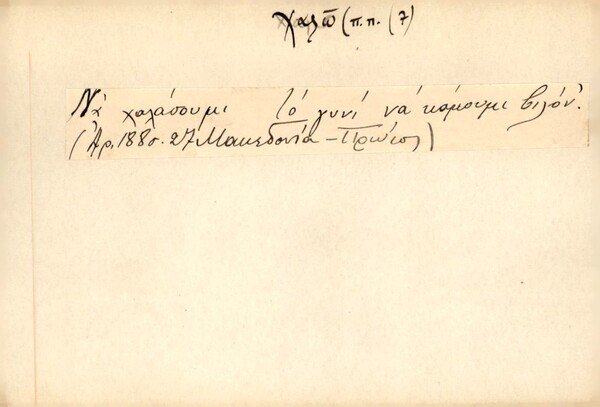 Χαλῶ (π.π. (7)
Νὰ χαλάσουμι τὸ γυνί νὰ κάμουμι βιλόν'.
(Ἀρ. 188 σ. 27 Μακεδονία - Πρώτος)